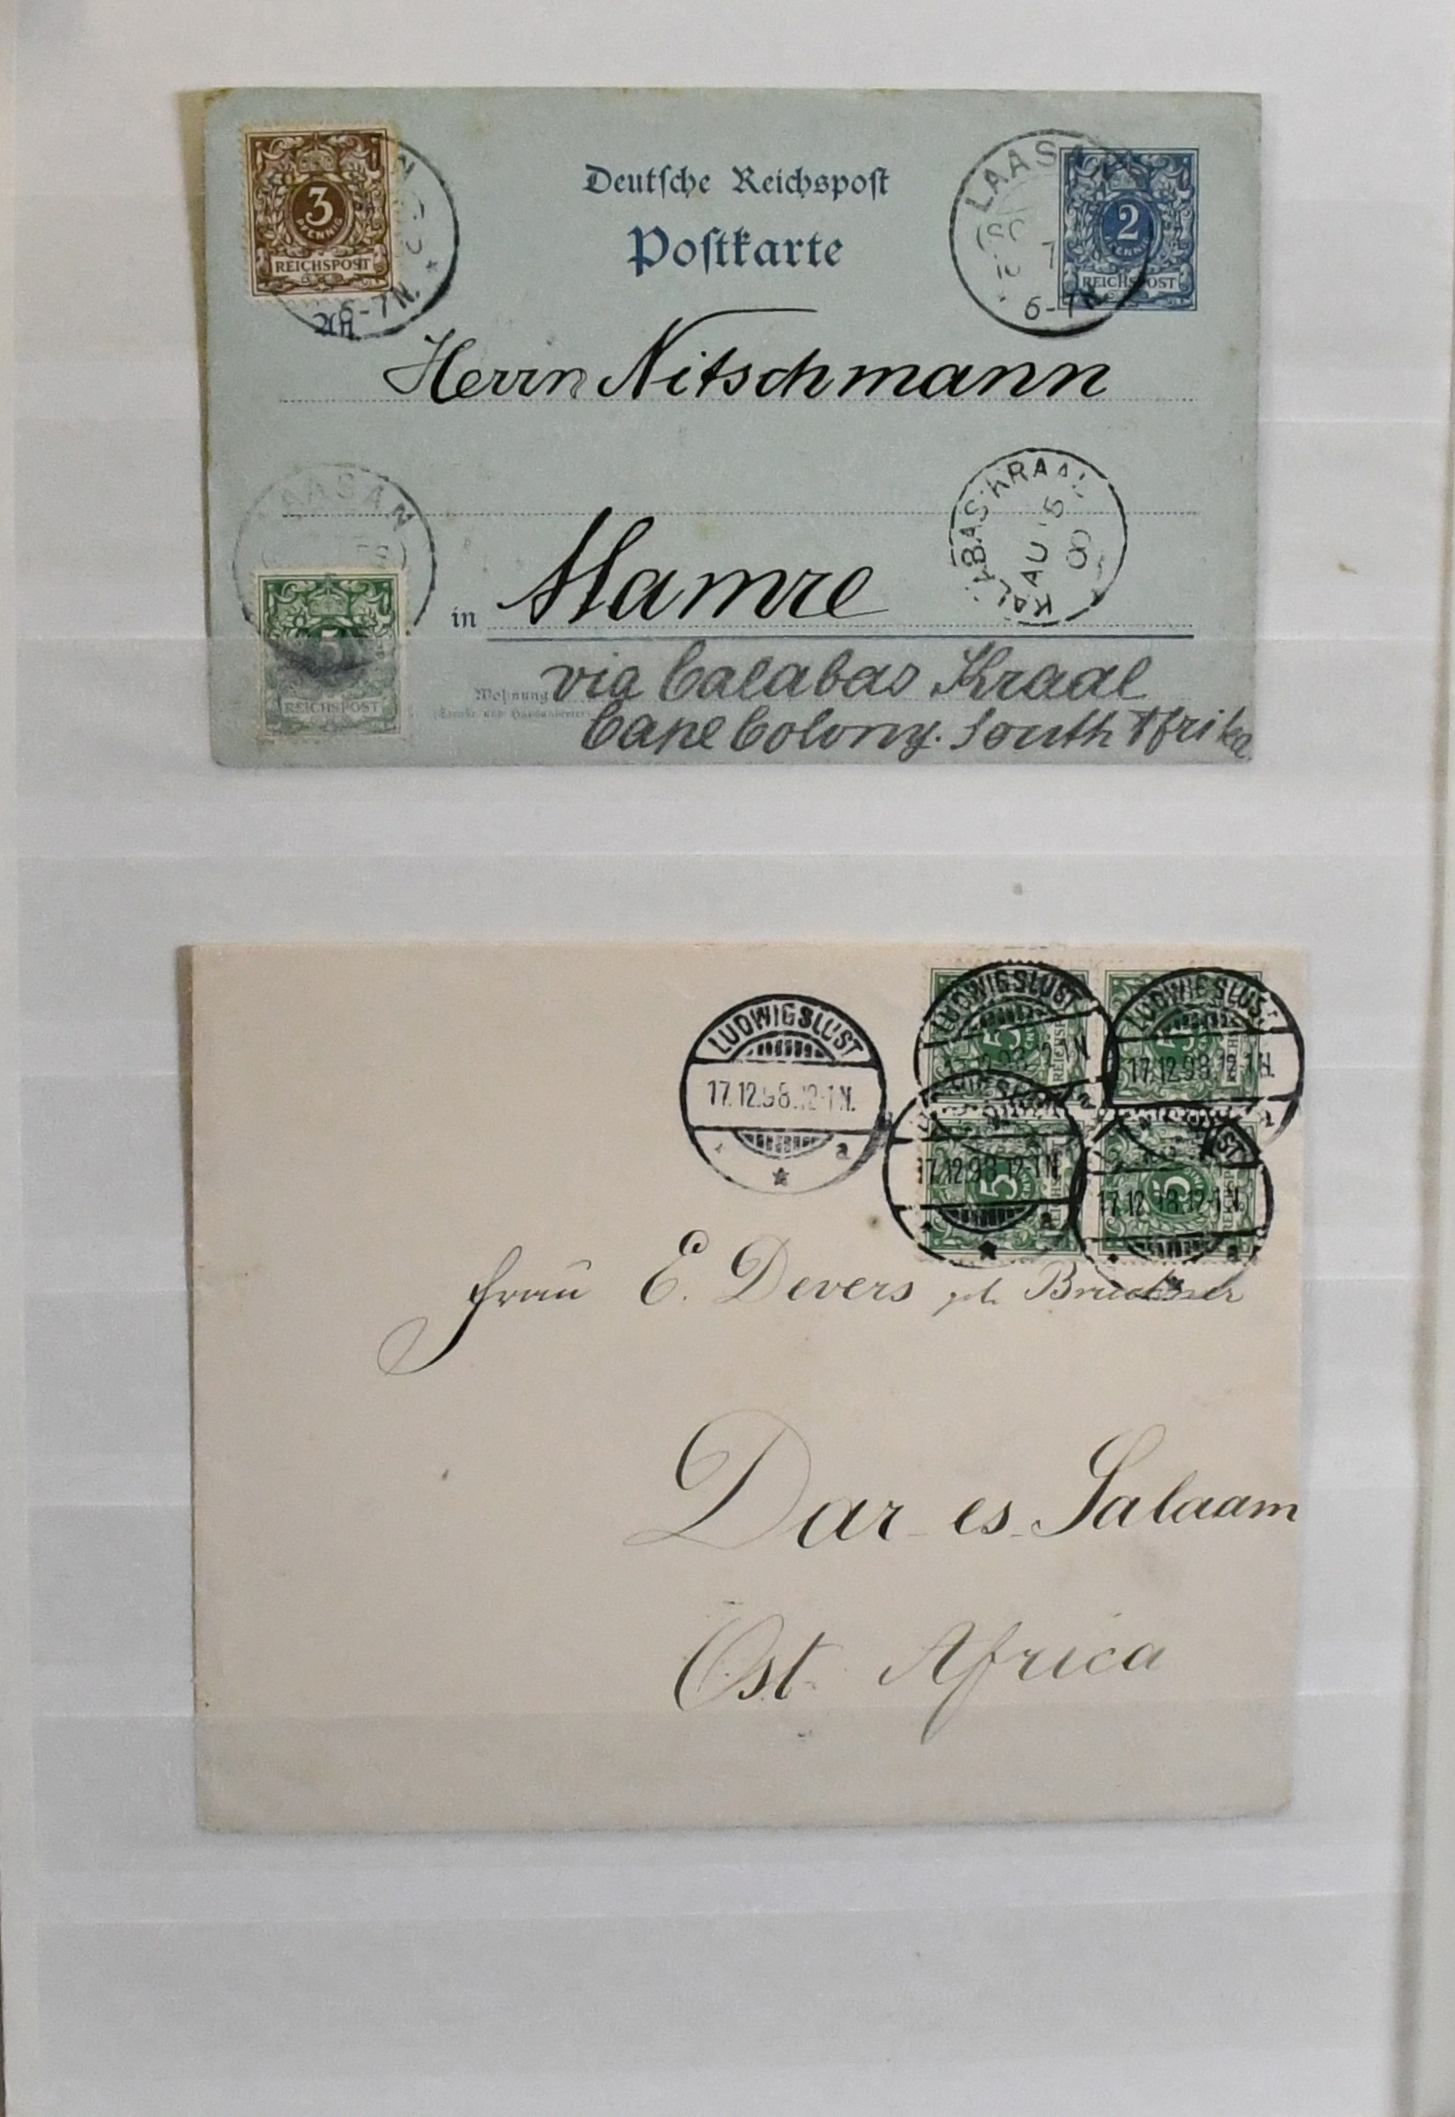 3
PFENNIG
REICHSPOST
6-7N.
Deutsche Reichspost
Postkarte
An
LAASAN
6-7N.
2
PFENNIG
REICHSPOST
Herrn Nitschmann
LAASAN
5
REICHSPOST
KALABAS-KRAAL
AU 5
00
in Mamre
Wohnung
via Calabas Kraal
Cape Colony. South Afrika
LUDWIGSLUST
17.12.98.12-1N.
a
LUDWIGSLUST
5
17.12.98.12-1N
LUDWIGSLUST
5
17.12.98.12-1N.
17.12.98.12-1N.
5
a
17.12.98.12-1N.
5
a
Frau E. Devers geb. Brückner
Dar-es-Salaam
Ost Africa